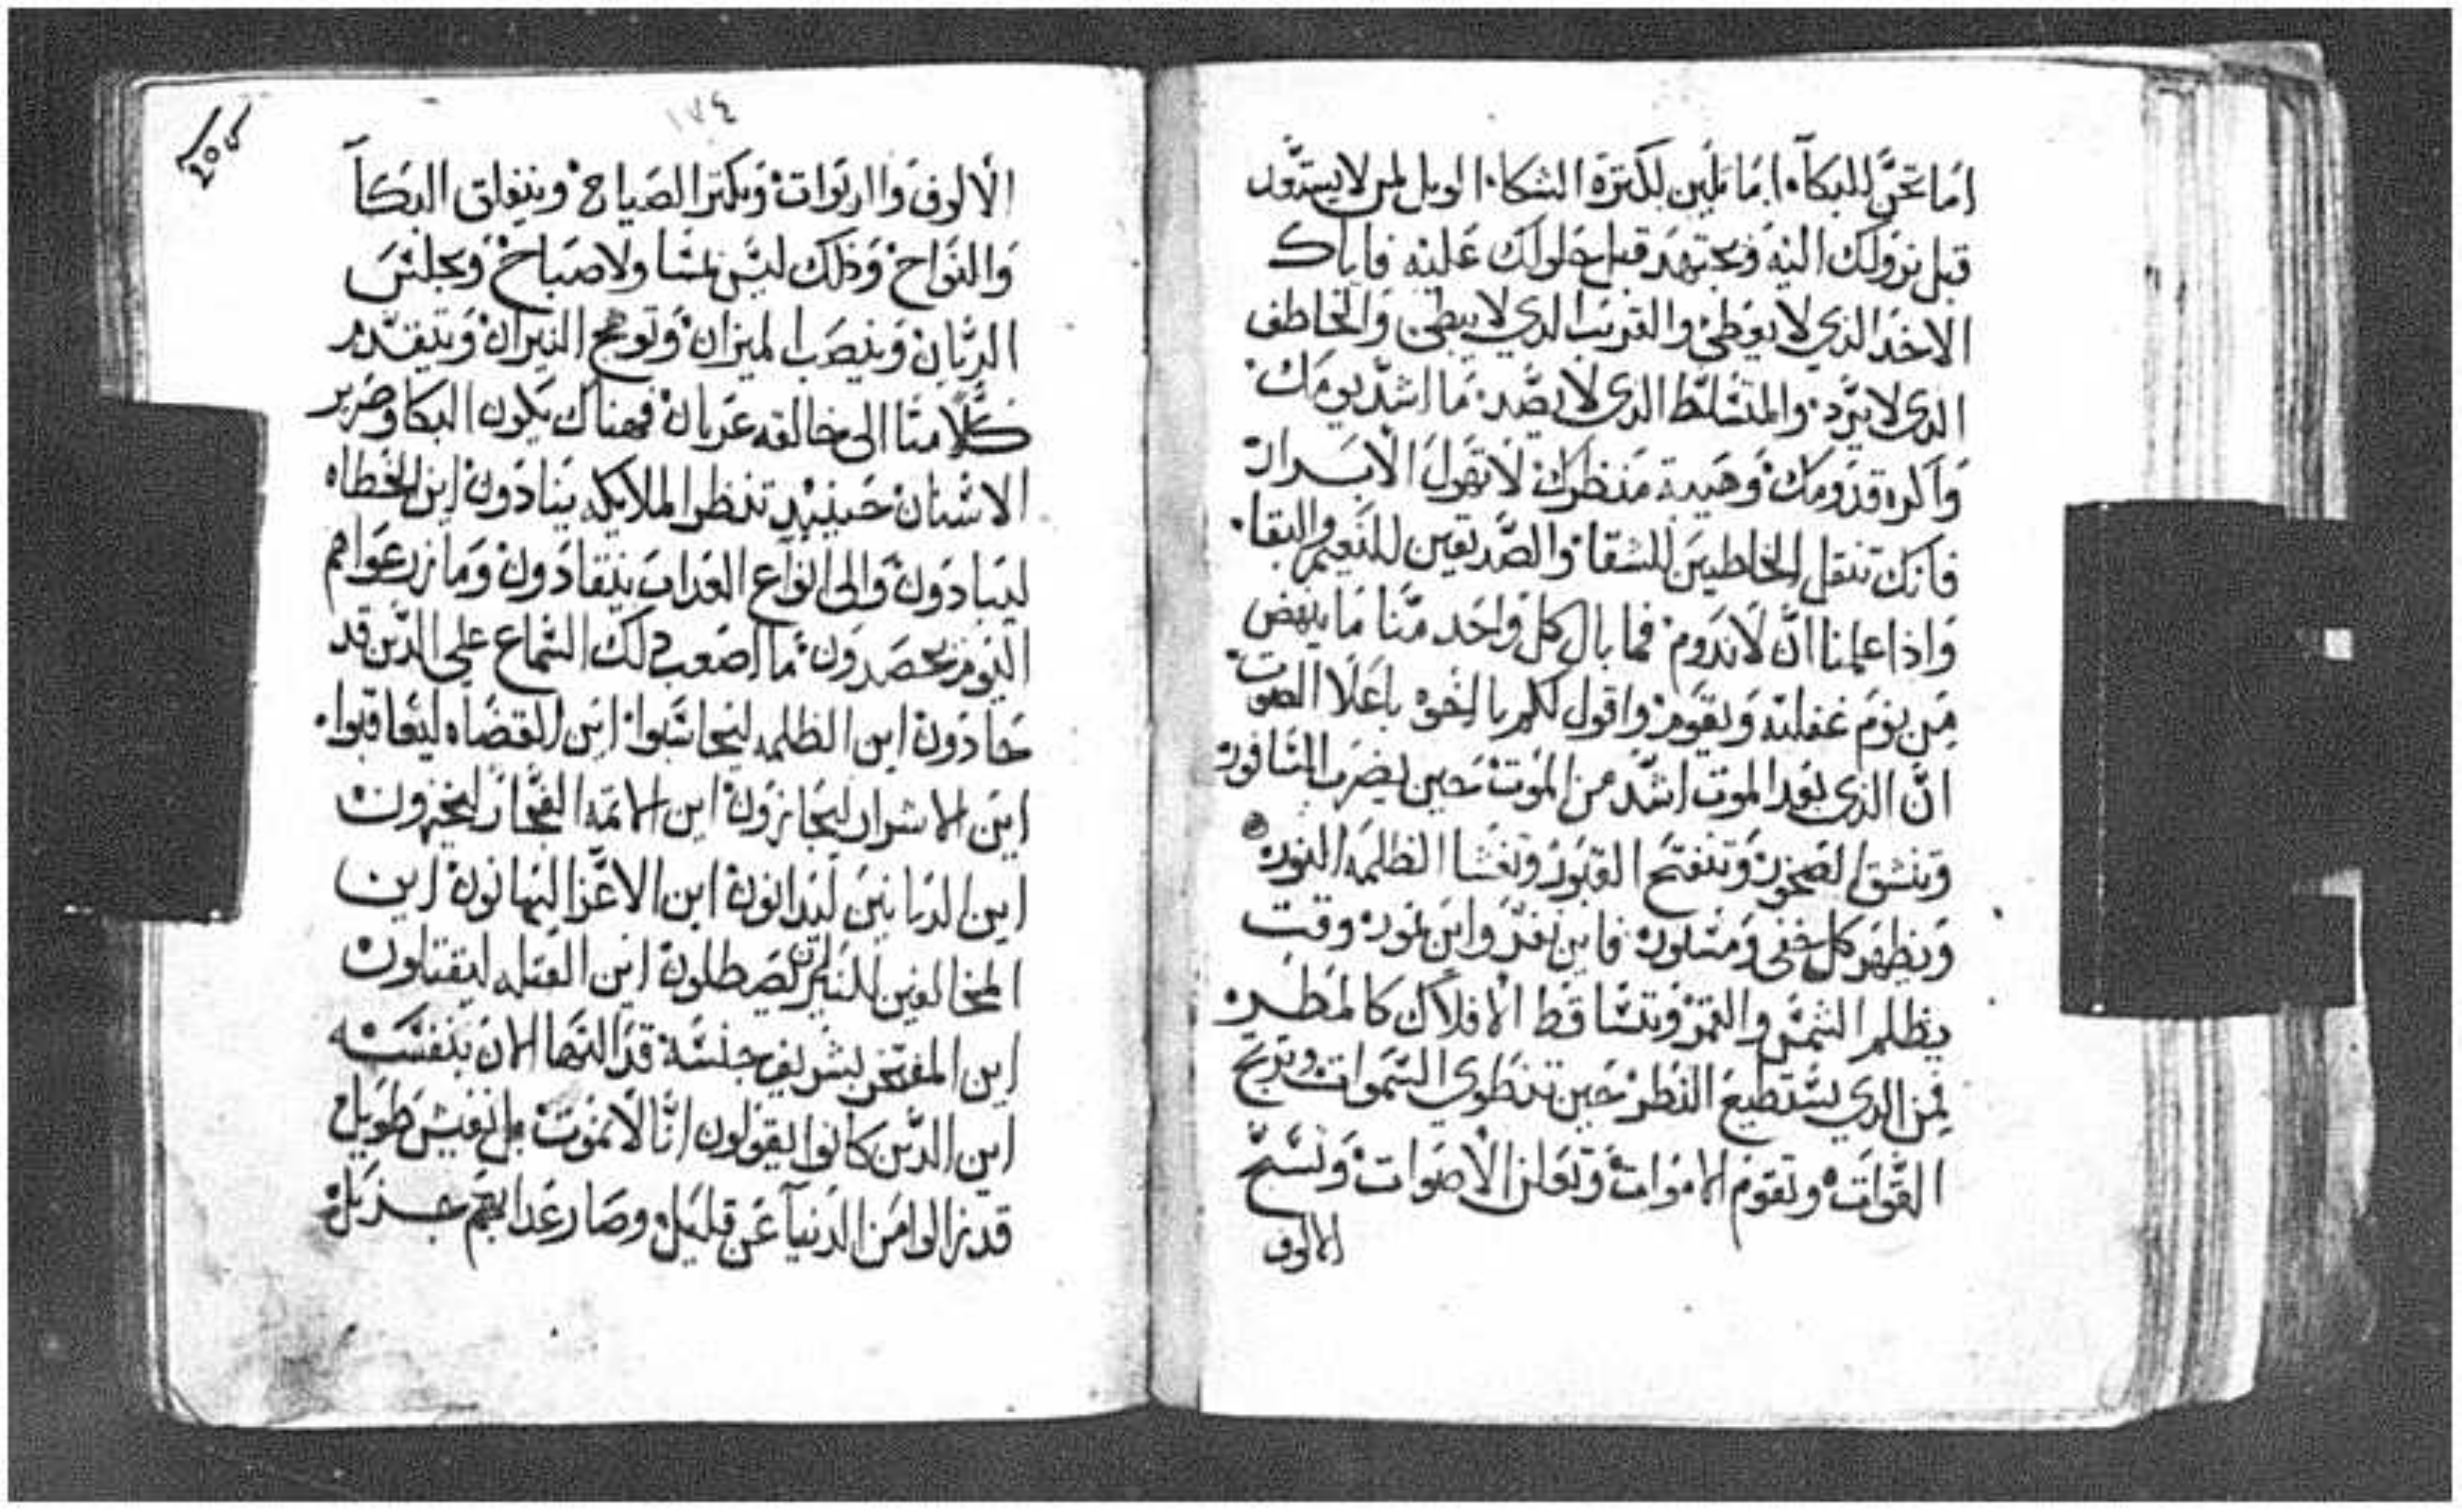 اما تحن للبكآ. اما تلين لكترة الشكا. الويل لمن لا يستعد
قبل نزولك اليه ويجتهد قبل حلولك عليه فاياك
الاخد الذي لا يوطي والقريب الدي لا يبطي والخاطف
الدي لا يرد. والمتسلط الدي لا يصد. ما اشد يومك.
واكره قدومك وهيبة منظرك لا تقول الابرار
فانك تنقل الخاطيين للشقا. والصديقين للنعيم والبقا.
واذا علمنا ان لا ندوم فما بال كل واحد منا ما ينهض
من نوم غفلته ويقوم واقول لكم يا اخوه باعلا الصوت
ان الذي بعد الموت اشد من الموت حين يضرب الناقور
وتنشق الصخور وتنفتح القبور وتغشا الظلمه النور
ويظهر كل خفي ومستور فاين نفر واين نمور وقت
يظلم الشمس والقمر وتتساقط الافلاك كالمطر
فمن الدي يستطيع النظر حين تنطوي السموات وترتج
القوات وتقوم الاموات وتعلن الاصوات وتسبح
الالوف
١٧٤
الالوف والربوات ويكتر الصياح وينغلق البكآ
والنواح وذلك ليس لمسا ولا صباح ويجلس
الديان وينصب الميزان وتوهج النيران ويتقدم
كلا منا الى خالقه عريان فهناك يكون البكا وصرير
الاسنان حينيد تنظر الملايكه ينادون اين الخطاه
ليبادون والى انواع العداب ينقادون وما زرعوا هم
اليوم يحصدون ما اصعب دلك السماع على الدين قد
حادون اين الظلمه ليحاسبوا اين القضاه ليعاقبوا.
اين الاشرار ليجازون اين الاتمه الفجار ليخزون
اين الديانين ليدانون اين الاعزا ليهانون اين
المخالفين للنيران ليصطلون اين القتله ليقتلون
اين المفتخر بشريف جنسه قد التها الان بنفسه
اين الدين كانوا يقولون اننا لا نموت بل نعيش طويل
قد زالوا من الدنيآ عن قليل وصار عدابهم جزيل